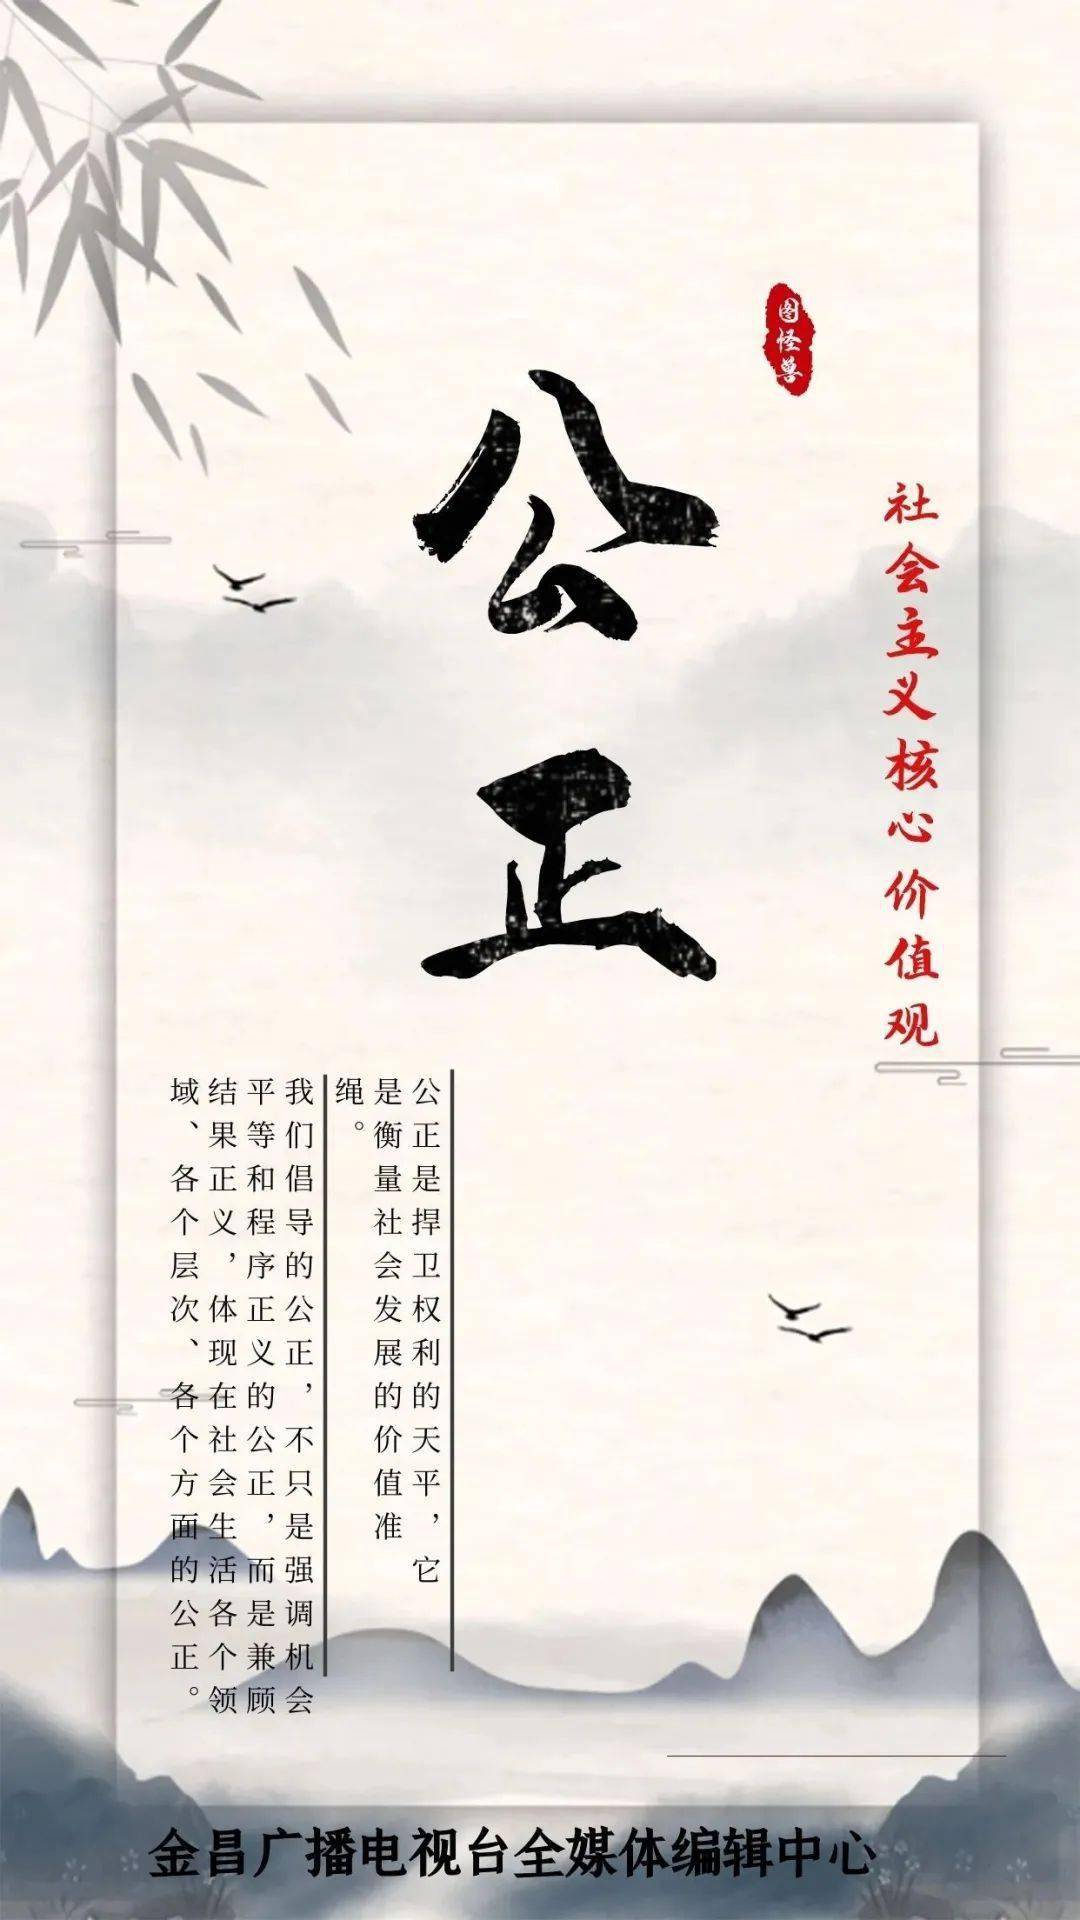 图怪兽
社会主义核心价值观
公正
公正是捍卫权利的天平，它
是衡量社会发展的价值准
绳。
我们倡导的公正，不只是强调机会
平等和程序正义的公正，而是兼顾
结果正义，体现在社会生活各个领
域、各个层次、各个方面的公正。
金昌广播电视台全媒体编辑中心